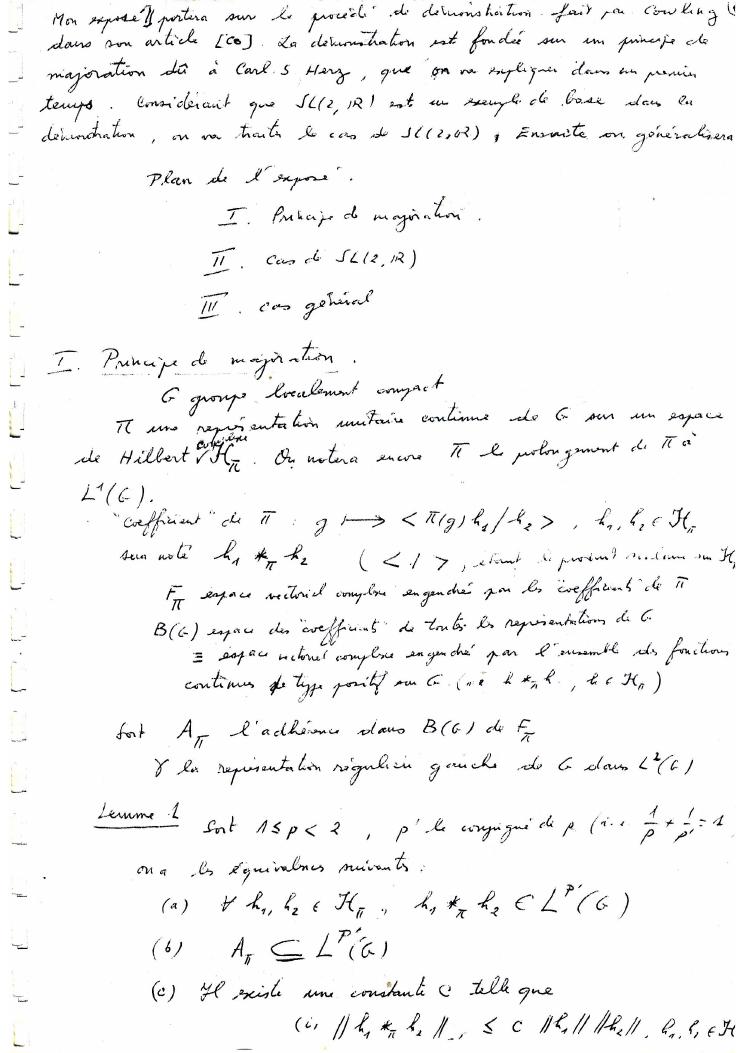 Mon exposé portera sur le procédé de démonstration fait par Cowling
dans son article [Co]. La démonstration est fondée sur un principe de
majoration dû à Carl. S Herz, que on va expliquer dans un premier
temps. Considérant que SL(2, IR) est un exemple de base dans la
démonstration, on va traiter le cas de SL(2, IR), Ensuite on généralisera
Plan de l'exposé.
I. Principe de majoration.
II. cas de SL(2, IR)
III. cas général
I. Principe de majoration.
G groupe localement compact
π une représentation unitaire continue de G sur un espace
complexe
de Hilbert √ ℋ_π. On notera encore π le prolongement de π à
L¹(G).
"coefficient" de π : g ⟼ < π(g) h₁ / h₂ >, h₁, h₂ ∈ ℋ_π
sera noté h₁ *_π h₂ ( < . / > , étant le produit scalaire sur ℋ
F_π espace vectoriel complexe engendré par les "coefficients" de π
B(G) espace des "coefficients" de toutes les représentations de G
≡ espace vectoriel complexe engendré par l'ensemble des fonctions
continues de type positif sur G (i.e h *_π h, h ∈ ℋ_π)
Soit A_π l'adhérence dans B(G) de F_π
γ la représentation régulière gauche de G dans L²(G)
Lemme 1 Soit 1 ≤ p < 2, p' le conjugué de p (i.e 1/p + 1/p' = 1
on a les équivalences suivantes :
(a) ∀ h₁, h₂ ∈ ℋ_π, h₁ *_π h₂ ∈ L^p'(G)
(b) A_π ⊆ L^p'(G)
(c) Il existe une constante C telle que
(i) ‖h₁ *_π h₂‖ ≤ C ‖h₁‖ ‖h₂‖, h₁, h₂ ∈ ℋ